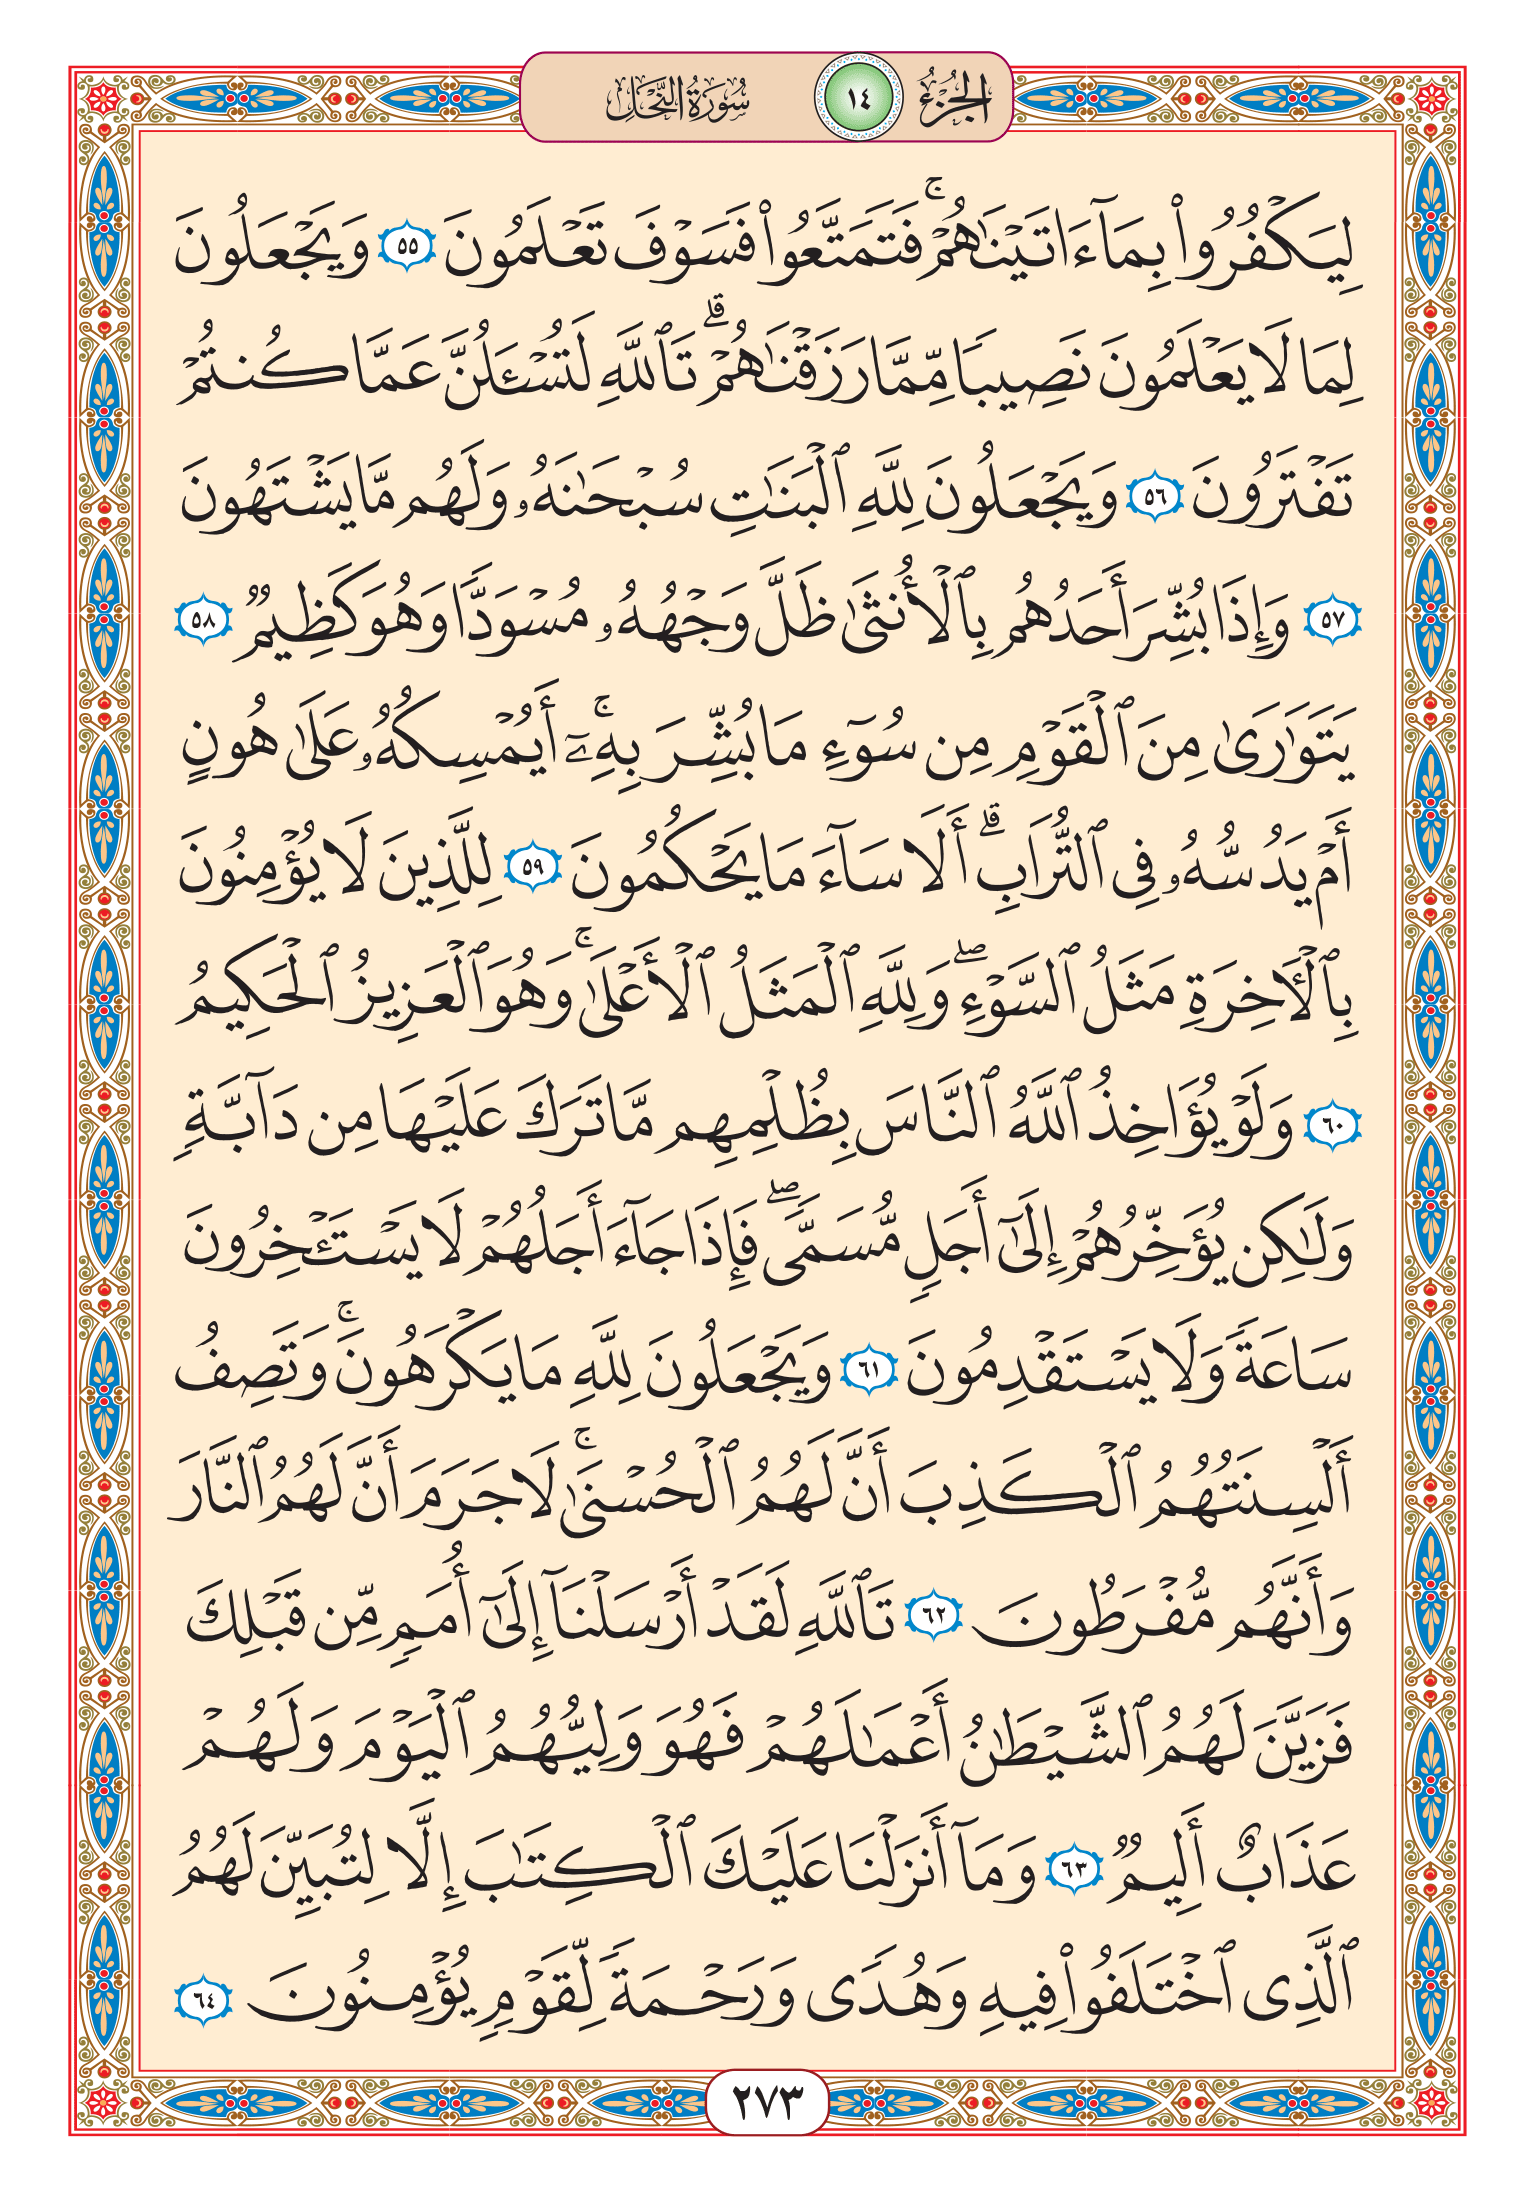 الجزء ١٤ سورة النحل
لِيَكْفُرُوا۟ بِمَآ ءَاتَيْنَـٰهُمْ ۚ فَتَمَتَّعُوا۟ فَسَوْفَ تَعْلَمُونَ ٥٥ وَيَجْعَلُونَ
لِمَا لَا يَعْلَمُونَ نَصِيبًا مِّمَّا رَزَقْنَـٰهُمْ ۗ تَٱللَّهِ لَتُسْـَٔلُنَّ عَمَّا كُنتُمْ
تَفْتَرُونَ ٥٦ وَيَجْعَلُونَ لِلَّهِ ٱلْبَنَـٰتِ سُبْحَـٰنَهُۥ وَلَهُم مَّا يَشْتَهُونَ
٥٧ وَإِذَا بُشِّرَ أَحَدُهُم بِٱلْأُنثَىٰ ظَلَّ وَجْهُهُۥ مُسْوَدًّا وَهُوَ كَظِيمٌ ٥٨
يَتَوَٰرَىٰ مِنَ ٱلْقَوْمِ مِن سُوٓءِ مَا بُشِّرَ بِهِۦٓ ۚ أَيُمْسِكُهُۥ عَلَىٰ هُونٍ
أَمْ يَدُسُّهُۥ فِى ٱلتُّرَابِ ۗ أَلَا سَآءَ مَا يَحْكُمُونَ ٥٩ لِلَّذِينَ لَا يُؤْمِنُونَ
بِٱلْـَٔاخِرَةِ مَثَلُ ٱلسَّوْءِ ۖ وَلِلَّهِ ٱلْمَثَلُ ٱلْأَعْلَىٰ ۚ وَهُوَ ٱلْعَزِيزُ ٱلْحَكِيمُ
٦٠ وَلَوْ يُؤَاخِذُ ٱللَّهُ ٱلنَّاسَ بِظُلْمِهِم مَّا تَرَكَ عَلَيْهَا مِن دَآبَّةٍ
وَلَـٰكِن يُؤَخِّرُهُمْ إِلَىٰٓ أَجَلٍ مُّسَمًّى ۖ فَإِذَا جَآءَ أَجَلُهُمْ لَا يَسْتَـْٔخِرُونَ
سَاعَةً وَلَا يَسْتَقْدِمُونَ ٦١ وَيَجْعَلُونَ لِلَّهِ مَا يَكْرَهُونَ ۚ وَتَصِفُ
أَلْسِنَتُهُمُ ٱلْكَذِبَ أَنَّ لَهُمُ ٱلْحُسْنَىٰ ۚ لَا جَرَمَ أَنَّ لَهُمُ ٱلنَّارَ
وَأَنَّهُم مُّفْرَطُونَ ٦٢ تَٱللَّهِ لَقَدْ أَرْسَلْنَآ إِلَىٰٓ أُمَمٍ مِّن قَبْلِكَ
فَزَيَّنَ لَهُمُ ٱلشَّيْطَـٰنُ أَعْمَـٰلَهُمْ فَهُوَ وَلِيُّهُمُ ٱلْيَوْمَ وَلَهُمْ
عَذَابٌ أَلِيمٌ ٦٣ وَمَآ أَنزَلْنَا عَلَيْكَ ٱلْكِتَـٰبَ إِلَّا لِتُبَيِّنَ لَهُمُ
ٱلَّذِى ٱخْتَلَفُوا۟ فِيهِ وَهُدًى وَرَحْمَةً لِّقَوْمٍ يُؤْمِنُونَ ٦٤
٢٧٣